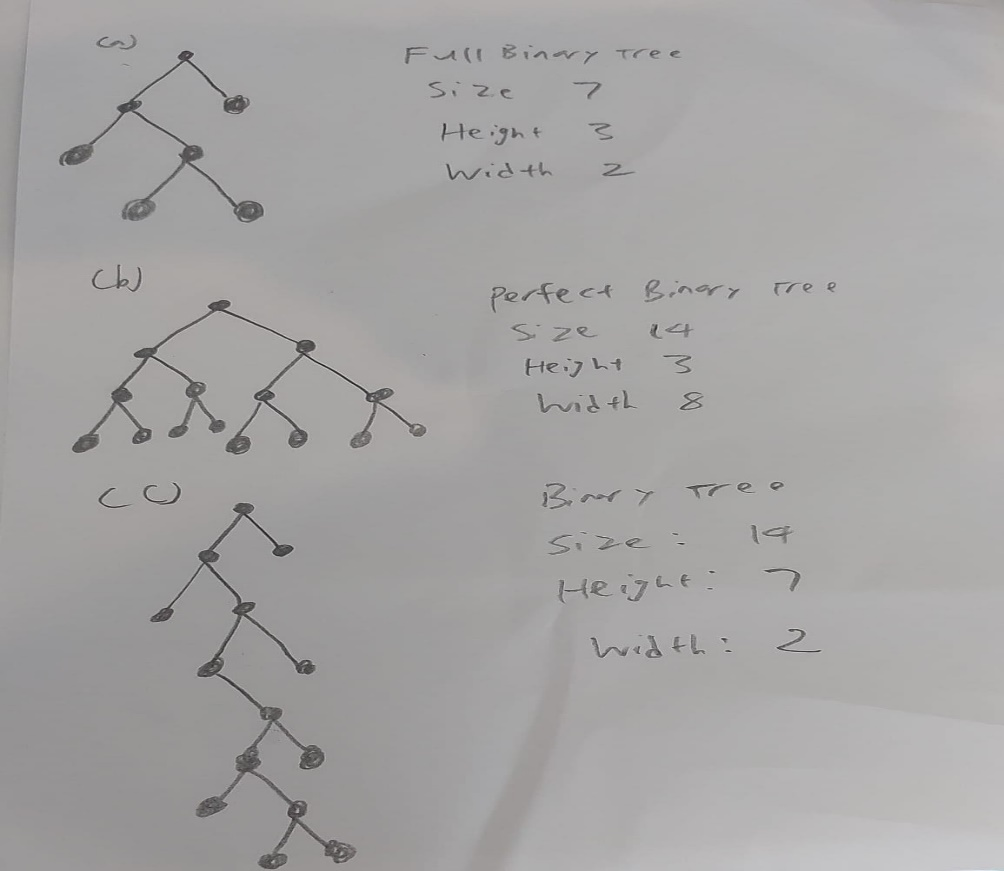 (a)
Full Binary Tree
Size 7
Height 3
Width 2
(b)
Perfect Binary Tree
Size 14
Height 3
Width 8
(c)
Binary Tree
Size: 14
Height: 7
Width: 2